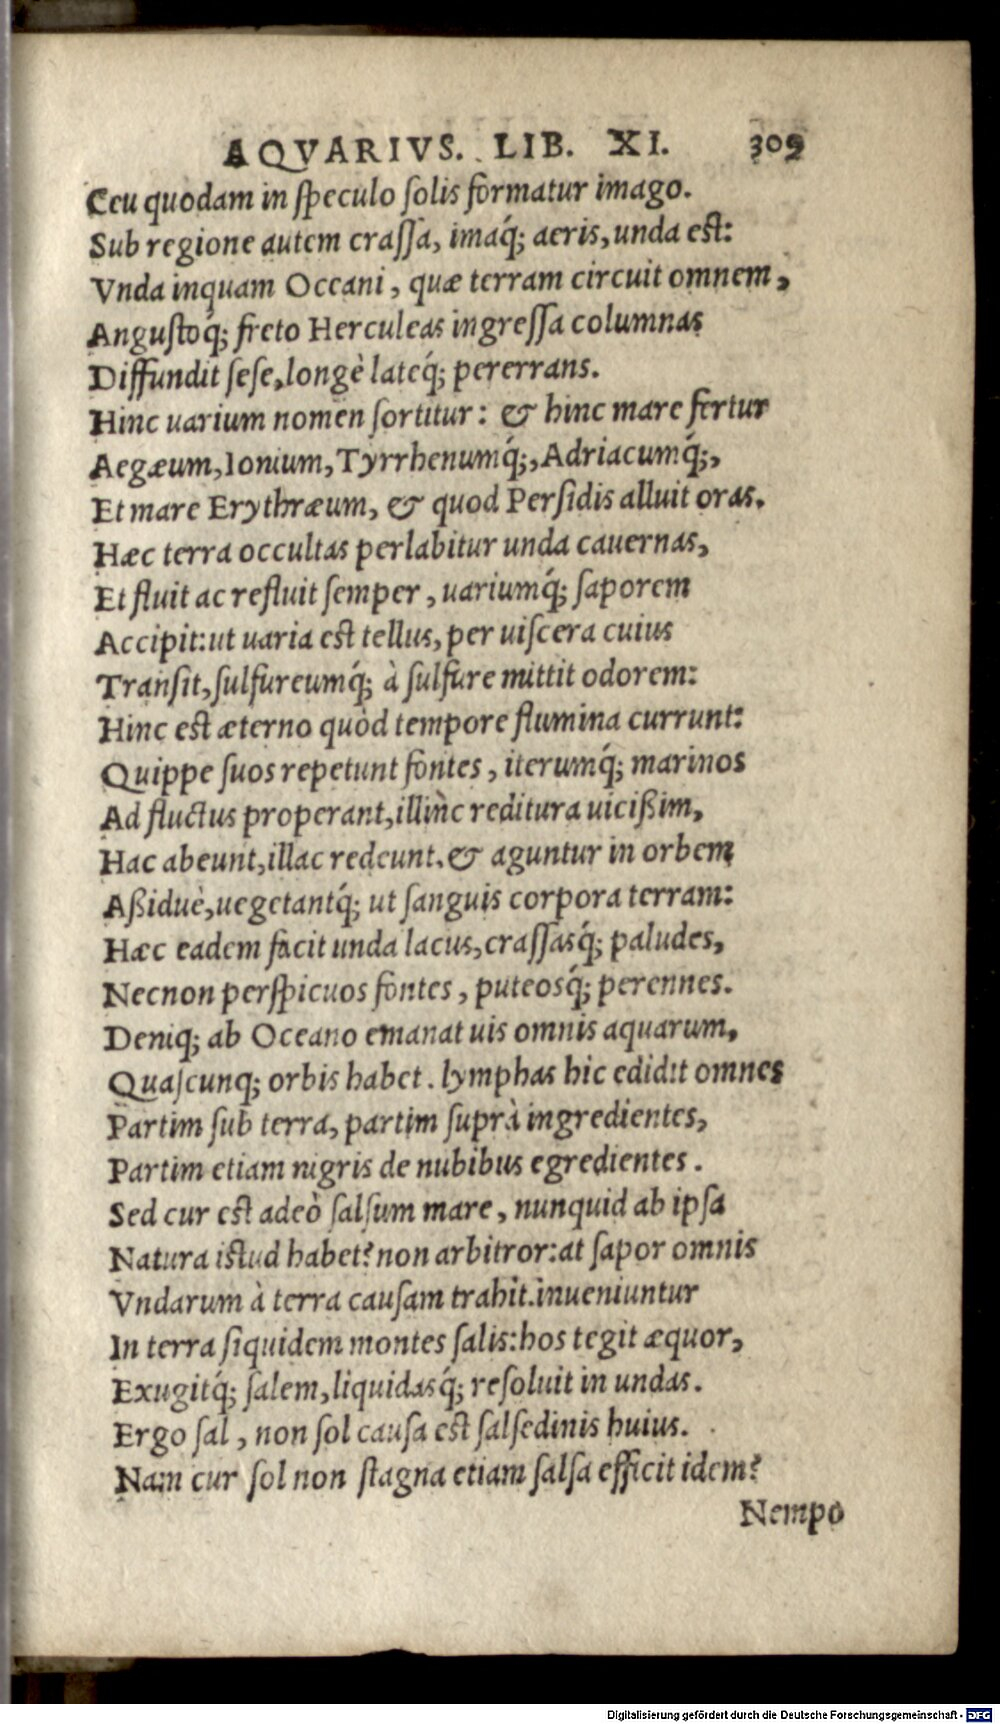 AQVARIVS. LIB. XI. 309
Ceu quodam in ſpeculo ſolis formatur imago.
Sub regione autem craſſa, imaq́; aeris, unda est:
Vnda inquam Oceani, quæ terram circuit omnem,
Anguſtoq́; freto Herculeas ingreſſa columnas
Diffundit ſeſe, longè lateq́; pererrans.
Hinc uarium nomen ſortitur: & hinc mare fertur
Aegæum, Ionium, Tyrrhenumq́;, Adriacumq́;,
Et mare Erythræum, & quod Perſidis alluit oras.
Hæc terra occultas perlabitur unda cauernas,
Et fluit ac refluit ſemper, uariumq́; ſaporem
Accipit: ut uaria est tellus, per uiſcera cuius
Tranſit, ſulfureumq́; à ſulfure mittit odorem:
Hinc est æterno quòd tempore flumina currunt:
Quippe ſuos repetunt fontes, iterumq́; marinos
Ad fluctus properant, illinc reditura uicißim,
Hac abeunt, illac redeunt. & aguntur in orbem
Aßiduè, uegetantq́; ut ſanguis corpora terram:
Hæc eadem facit unda lacus, craſſasq́; paludes,
Necnon perſpicuos fontes, puteosq́; perennes.
Deniq; ab Oceano emanat uis omnis aquarum,
Quaſcunq; orbis habet. lymphas hic edidit omnes
Partim ſub terra, partim ſuprà ingredientes,
Partim etiam nigris de nubibus egredientes.
Sed cur est adeò ſalſum mare, nunquid ab ipſa
Natura istud habet? non arbitror: at ſapor omnis
Vndarum à terra cauſam trahit. inueniuntur
In terra ſiquidem montes ſalis: hos tegit æquor,
Exugitq́; ſalem, liquidasq́; reſoluit in undas.
Ergo ſal, non ſol cauſa est ſalſedinis huius.
Nam cur ſol non ſtagna etiam ſalſa efficit idem?
Nempo
Digitalisierung gefördert durch die Deutsche Forschungsgemeinschaft - DFG